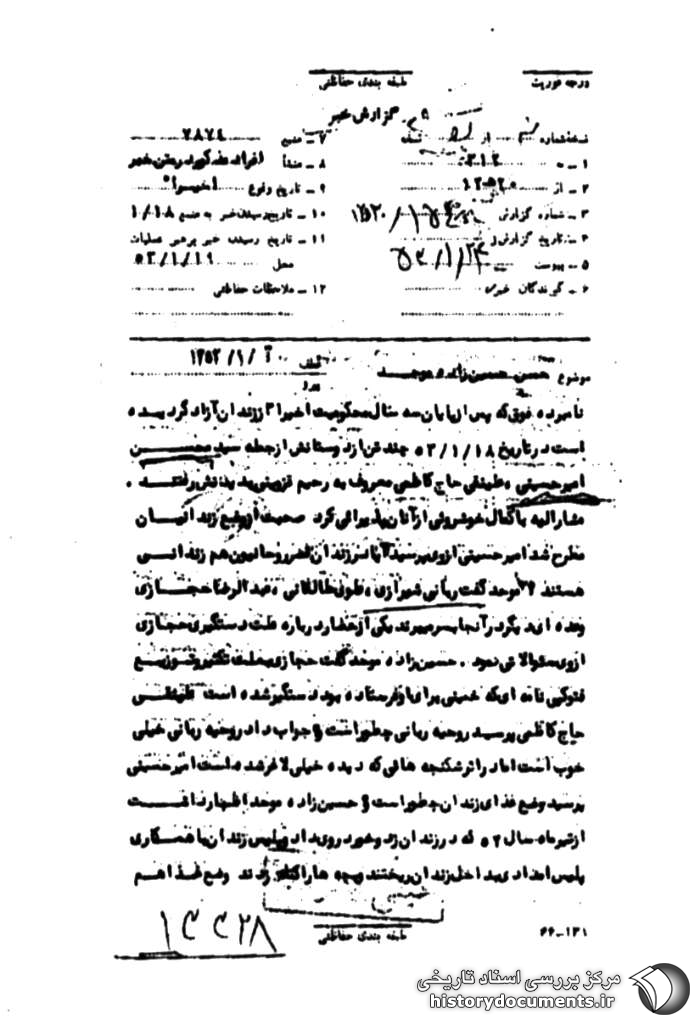 درجه فوریت
طبقه بندی حفاظتی
گزارش خبر
نسخه شماره از نسخه
۱ - به ۳۱۲
۲ - از
۳ - شماره گزارش
۴ - تاریخ گزارش ۵۳/۱/۲۴
۵ - پیوست
۶ - گیرندگان خبر
۷ - منبع ۲۸۷۴
۸ - منشأ افراد مذکور در متن خبر
۹ - تاریخ وقوع اخیرا"
۱۰ - تاریخ رسیدن خبر به منبع ۱/۱۸
۱۱ - تاریخ رسیدن خبر به رهبر عملیات
محل ۵۳/۱/۱۹
۱۲ - ملاحظات حفاظتی
موضوع حسن حسین زاده موحد
نامبرده فوق که پس از پایان سه سال محکومیت اخیرا" از زندان آزاد گردیده
است در تاریخ ۵۳/۱/۱۸ چند تن از دوستانش از جمله سید محسن
امیرحسینی ، علینقی حاج کاظمی معروف به رحیم قزوینی بدیدنش رفتند .
مشارالیه با کمال خوشروئی از آنان پذیرائی کرد صحبت از وضع زندانیان
مطرح شد امیرحسینی از وی پرسید آیا در زندان قصر روحانیون هم زندانی
هستند ؟ موحد گفت ربانی شیرازی ، طلائی طالقانی ، عبدالرضا حجازی
وعده ای دیگر در آنجا بسر میبرند یکی از حضار درباره علت دستگیری حجازی
از وی سئوالاتی نمود . حسین زاده موحد گفت حجازی بعلت تکثیر و توزیع
فتوکپی نامه ای که خمینی برای او فرستاده بود دستگیر شده است علینقی
حاج کاظمی پرسید روحیه ربانی چطور است و جواب داد روحیه ربانی خیلی
خوب است اما در اثر شکنجه هائی که دیده خیلی لاغر شده است امیرحسینی
پرسید وضع غذای زندان چطور است و حسین زاده موحد اظهار داشت
از تیرماه سال ۵۲ که در زندان زد و خورد روی داد و پلیس زندان با همکاری
پلیس امدادی بداخل زندان ریختند و بچه ها را کتک زدند وضع غذا هم
طبقه بندی حفاظتی
۶۶-۱۳۱
مرکز بررسی اسناد تاریخی
historydocuments.ir